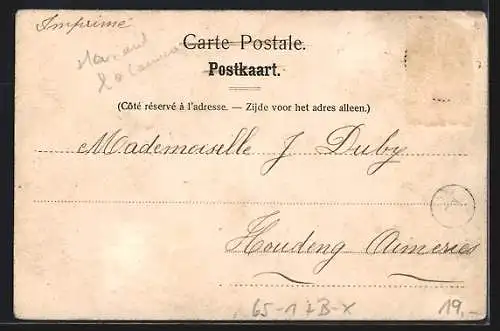 Imprimé
Carte Postale.
Postkaart.
(Côté réservé à l'adresse. — Zijde voor het adres alleen.)
Mademoiselle J Duby
Houdeng Aimeries
65-17B-X
19,-